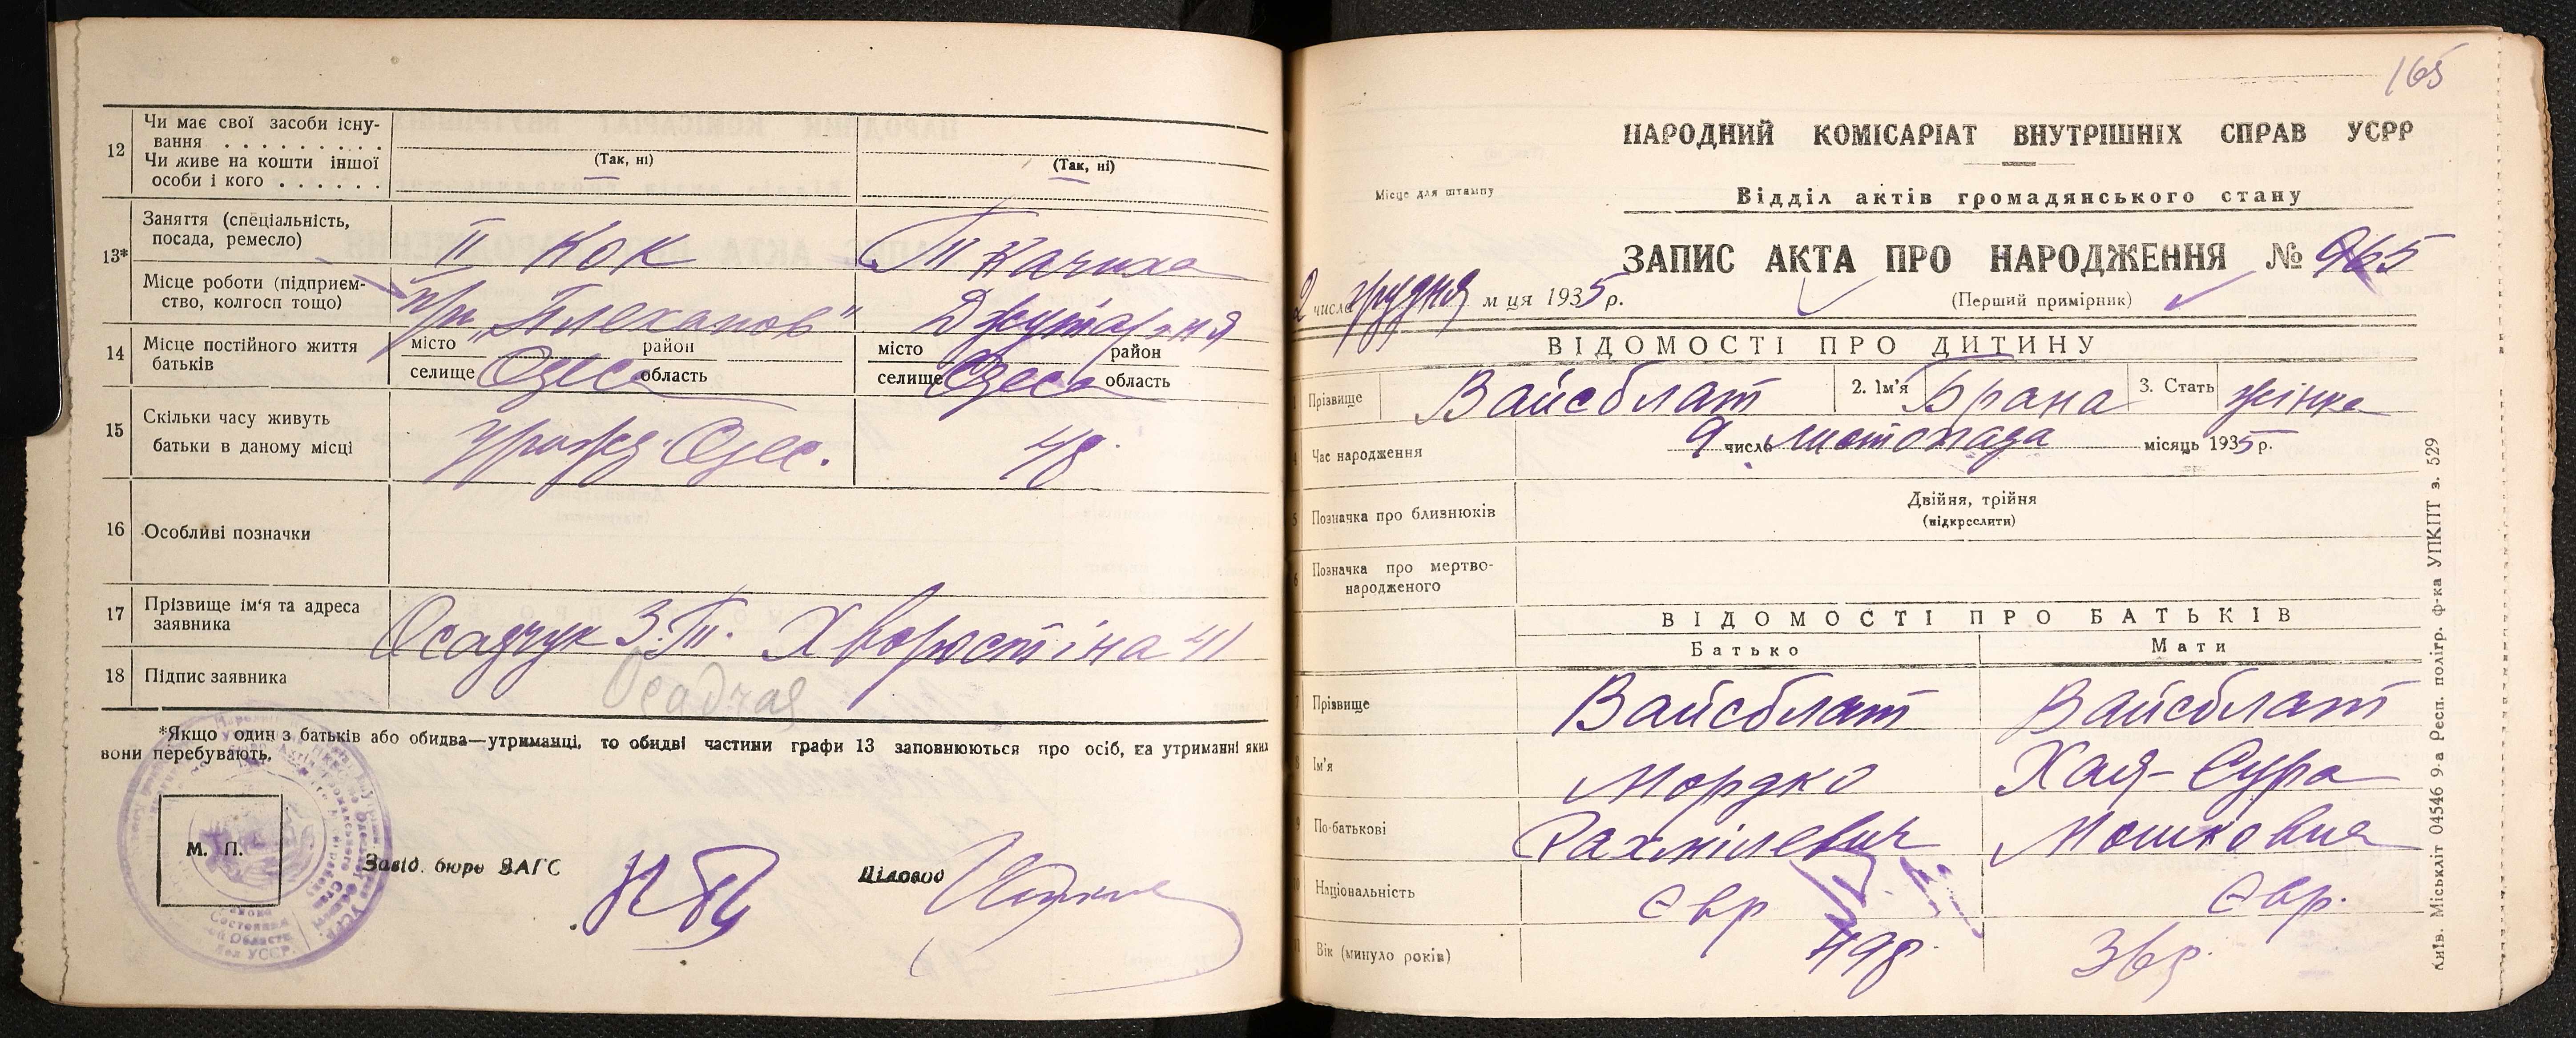 12 Чи має свої засоби існу-
вання . . . . . . . . .
Чи живе на кошти іншої
особи і кого . . . . . .
(Так, ні) (Так, ні)
13* Заняття (спеціальність,
посада, ремесло) II Кок Ткачиха
Місце роботи (підприєм-
ство, колгосп тощо) „Плеханов" Джутарня
14 Місце постійного життя
батьків
місто район місто район
селище Одеса область селище Одеса область
15 Скільки часу живуть
батьки в даному місці урожд. Одес. 4 р.
16 Особливі позначки
17 Прізвище ім'я та адреса
заявника Осадчук З. Т. Хворостіна 41
18 Підпис заявника Осадчая
*Якщо один з батьків або обидва—утриманці, то обидві частини графи 13 заповнюються про осіб, на утриманні яких
вони перебувають.
М. П.
Завід. бюро ЗАГС
Діловод
165
НАРОДНИЙ КОМІСАРІАТ ВНУТРІШНІХ СПРАВ УСРР
Місце для штампу
Відділ актів громадянського стану
ЗАПИС АКТА ПРО НАРОДЖЕННЯ № 965
2 числа грудня м ця 1935 р.
(Перший примірник)
ВІДОМОСТІ ПРО ДИТИНУ
1 Прізвище Вайсблат 2. Ім'я Брана 3. Стать жінка
4 Час народження 9 число листопада місяць 1935 р.
5 Позначка про близнюків Двійня, трійня
(підкреслити)
6 Позначка про мертво-
народженого
ВІДОМОСТІ ПРО БАТЬКІВ
Батько Мати
7 Прізвище Вайсблат Вайсблат
8 Ім'я Мордко Хая-Сура
9 По-батькові Рахмілевич Мошковна
10 Національність Євр Євр.
11 Вік (минуло років) 49р. 36р.
Київ. Міськліт 04546 9-а Респ. полігр. ф-ка УПКПТ з. 529